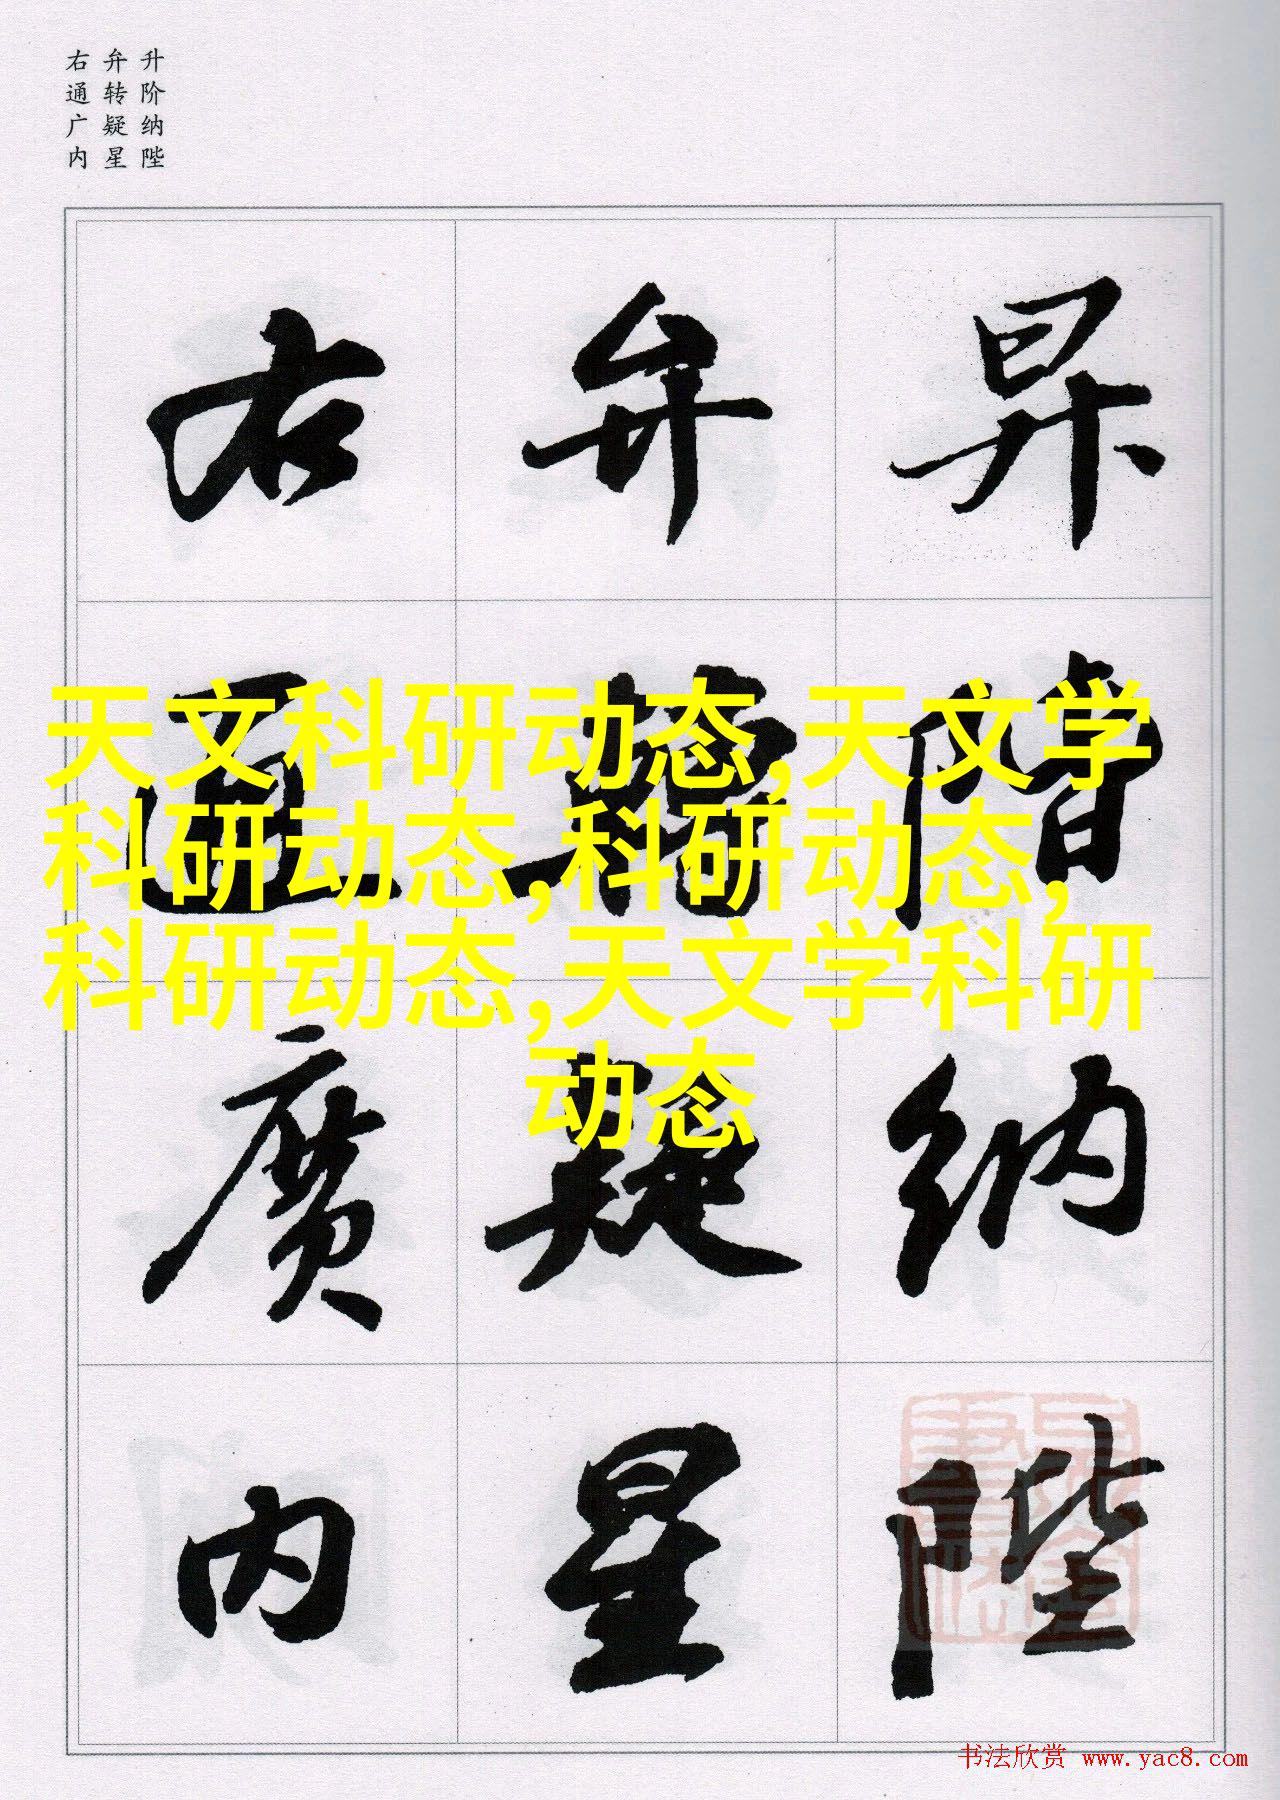 升阶纳陛
弁转疑星
右通广内
昇階納陛
弁轉疑星
右通廣内
天文科研动态,天文学
科研动态,科研动态,
科研动态,天文学科研
动态
书法欣赏 www.yac8.com